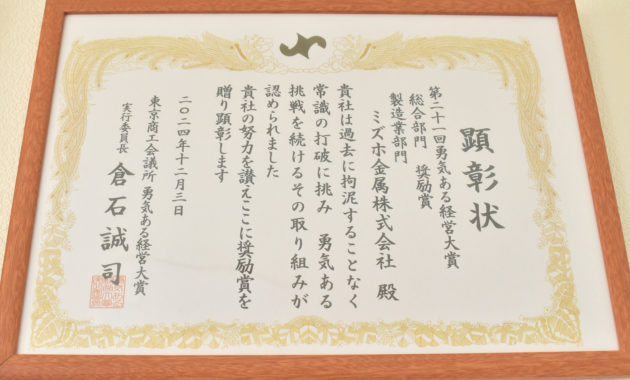 顕彰状
第二十一回勇気ある経営大賞
総合部門 奨励賞
製造業部門
ミズホ金属株式会社 殿
貴社は過去に拘泥することなく
常識の打破に挑み 勇気ある
挑戦を続けるその取り組みが
認められました
貴社の努力を讃えここに奨励賞を
贈り顕彰します
二〇二四年十二月三日
東京商工会議所 勇気ある経営大賞
実行委員長 倉石誠司